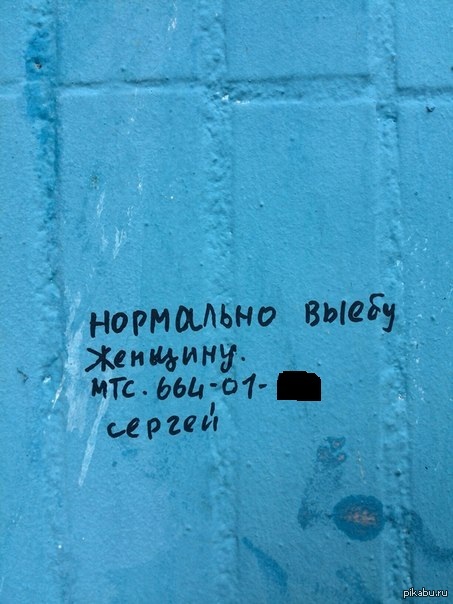 нормально выебу
женщину.
мтс. 664-01-
сергей
pikabu.ru